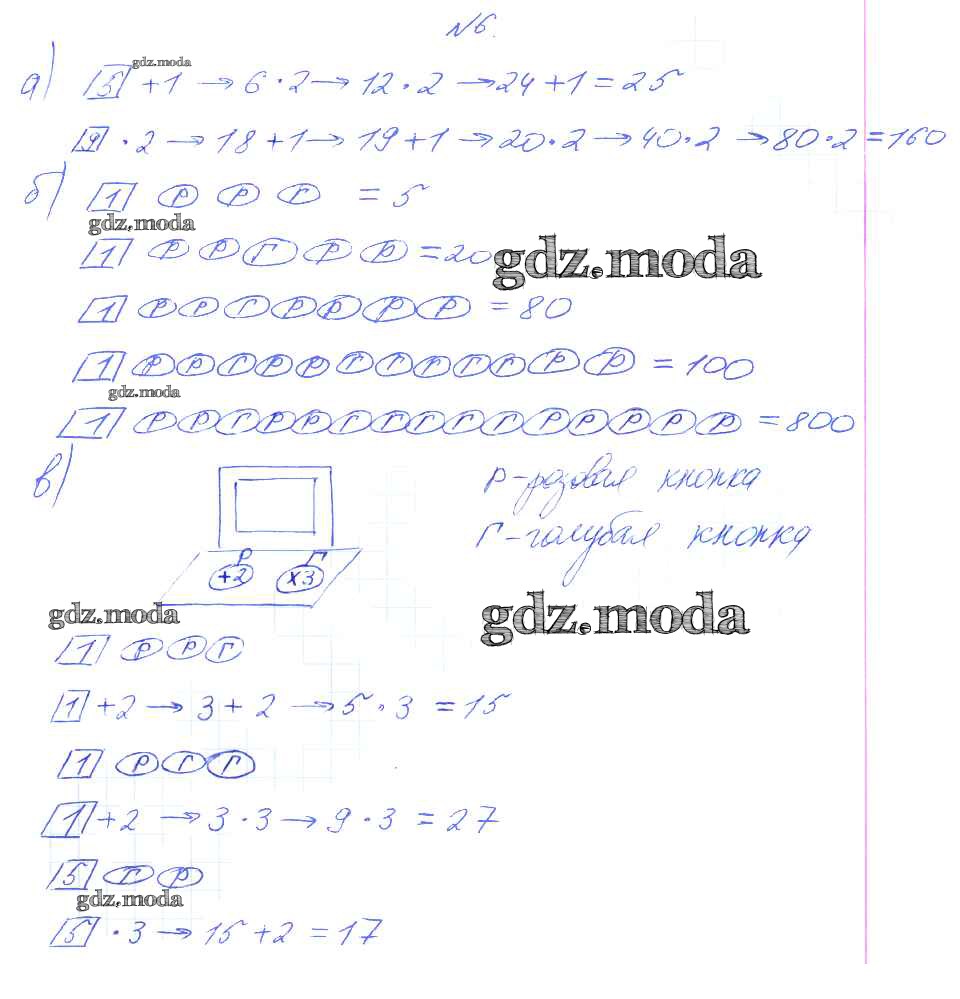 №6.
gdz.moda
а) 5 +1 → 6·2 → 12·2 → 24+1=25
9 ·2 → 18+1 → 19+1 → 20·2 → 40·2 → 80·2=160
б) 1 Р Р Г = 5
gdz.moda
1 Р Р Г Р Р = 20
gdz.moda
1 Р Р Г Р Р Р Р = 80
1 Р Р Г Р Р Г Г Г Г Р Р = 100
gdz.moda
1 Р Р Г Р Р Г Г Г Г Г Р Р Р Р = 800
в)
Р-розовая кнопка
Г-голубая кнопка
Р Г
+2 х3
gdz.moda
gdz.moda
1 Р Р Г
1 +2 → 3+2 → 5·3 = 15
1 Р Г Г
1 +2 → 3·3 → 9·3 = 27
5 Г Р
gdz.moda
5 ·3 → 15+2 = 17